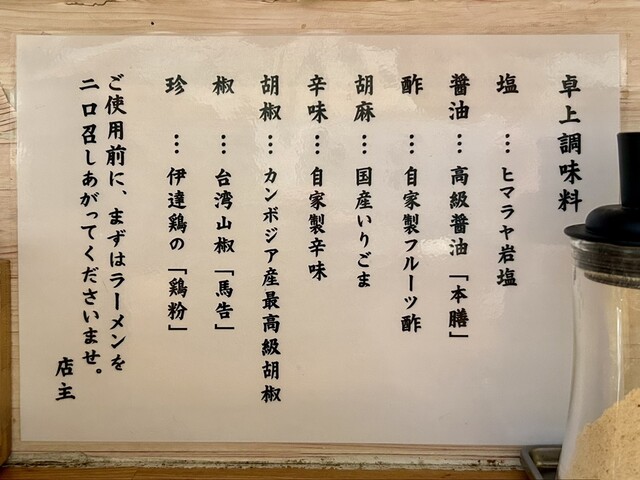 卓上調味料
塩…ヒマラヤ岩塩
醤油…高級醤油「本膳」
酢…自家製フルーツ酢
胡麻…国産いりごま
辛味…自家製辛味
胡椒…カンボジア産最高級胡椒
椒…台湾山椒「馬告」
珍…伊達鶏の「鶏粉」
ご使用前に、まずはラーメンを
二口召しあがってくださいませ。
店主